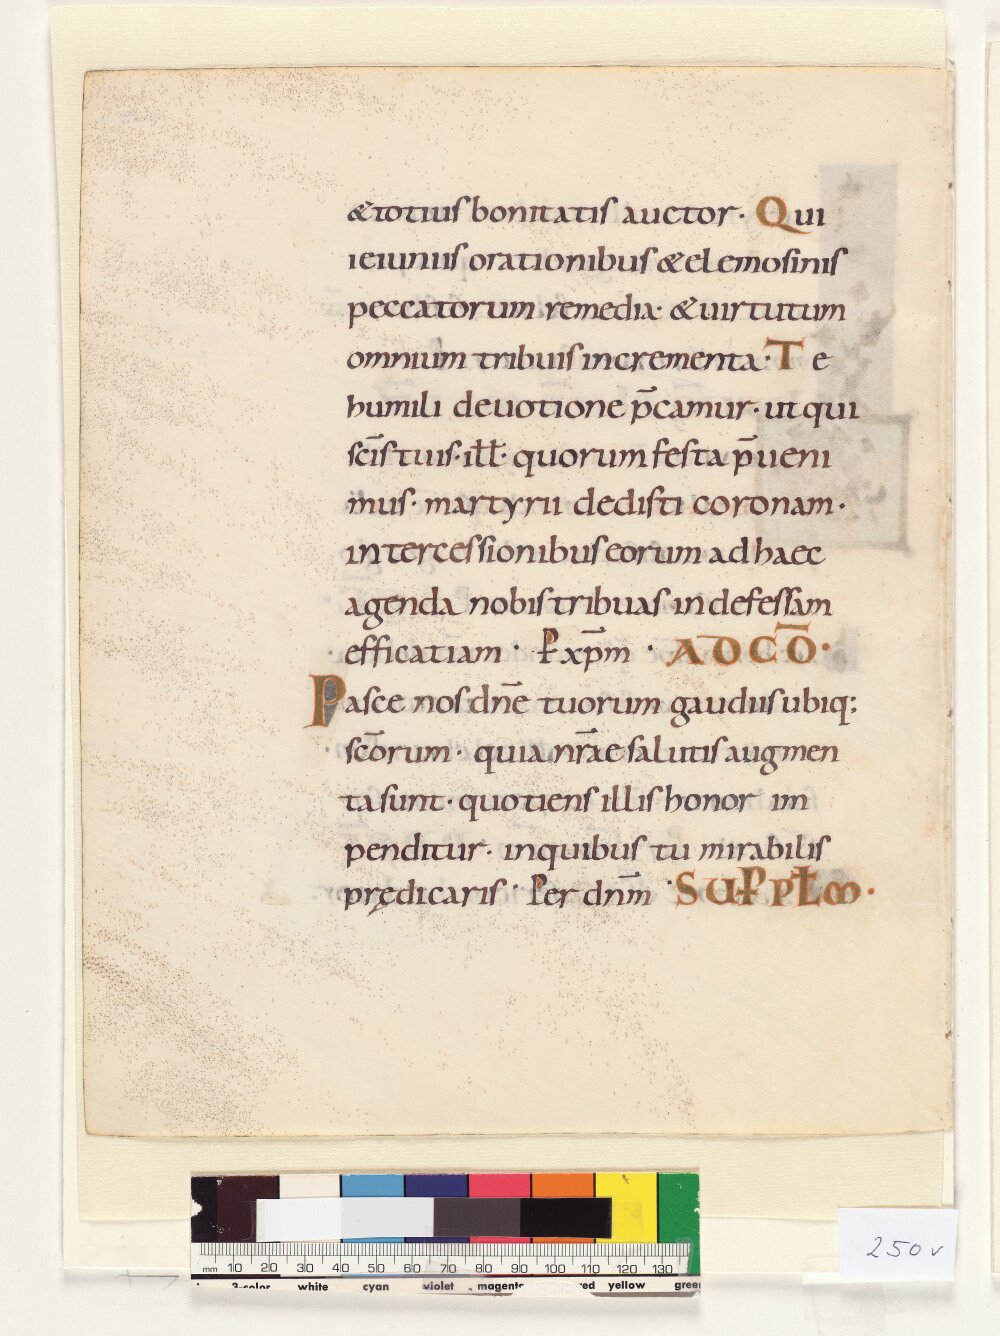 &totius bonitatis auctor· Qui
ieiuniis orationibus & elemosinis
peccatorum remedia· & uirtutum
omnium tribuis incrementa· Te
humili deuotione p̄camur· ut qui
sc̄is tuis· ill̄· quorum festa p̄ueni
mus· martyrii dedisti coronam·
intercessionibus eorum ad haec
agenda nobis tribuas indefessam
efficatiam · P xp̄m · AD CŌ·
Pasce nos dn̄e tuorum gaudiis ubiq;
sc̄orum· quia nr̄ae salutis augmen
ta sunt· quotiens illis honor im
penditur· in quibus tu mirabilis
prędicaris· Per dn̄m · SUP PŁM·
250v
mm 10 20 30 40 50 60 70 80 90 100 110 120 130
3-color white cyan violet magenta red yellow green